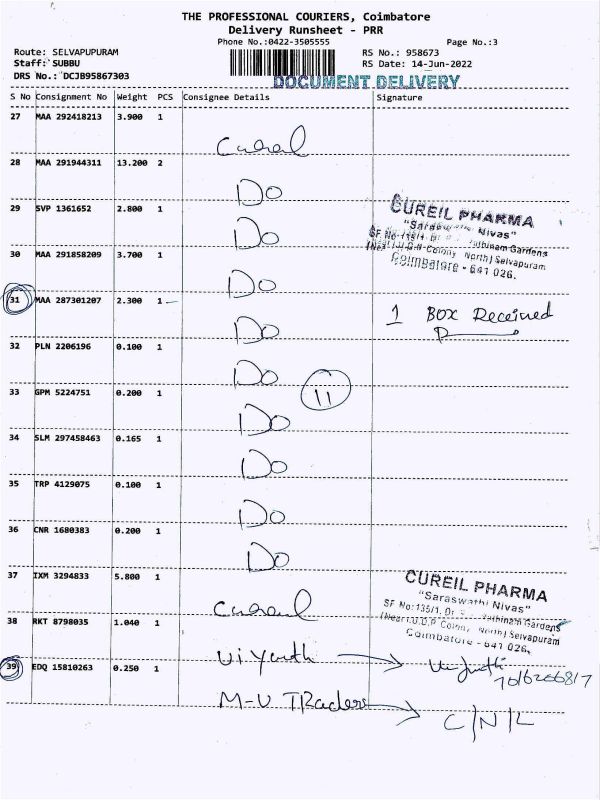 THE PROFESSIONAL COURIERS, Coimbatore
Delivery Runsheet - PRR
Phone No.:0422-3505555 Page No.:3
Route: SELVAPUPURAM RS No.: 958673
Staff: SUBBU RS Date: 14-Jun-2022
DRS No.: DCJB95867303 DOCUMENT DELIVERY
S No Consignment No Weight PCS Consignee Details Signature
27 MAA 292418213 3.900 1
28 MAA 291944311 13.200 2
Do
29 SVP 1361652 2.800 1
Do
CUREIL PHARMA
"Saraswathi Nivas"
SF No 135/1, Dr Gardens
(Near I.U.D.P Colony North) Selvapuram
Coimbatore - 641 026.
30 MAA 291858209 3.700 1
Do
31 MAA 287301207 2.300 1
Do
1 BOX Received
32 PLN 2206196 0.100 1
Do
11
33 GPM 5224751 0.200 1
Do
34 SLM 297458463 0.165 1
Do
35 TRP 4129075 0.100 1
Do
36 CNR 1680383 0.200 1
Do
37 IXM 3294833 5.800 1
CUREIL PHARMA
"Saraswathi Nivas"
SF No:135/1, Dr Gardens
(Near I.U.D.P Colony North) Selvapuram
Coimbatore - 641 026.
38 RKT 8798035 1.040 1
39 EDQ 15810263 0.250 1
M-U TRaders
C/N/L